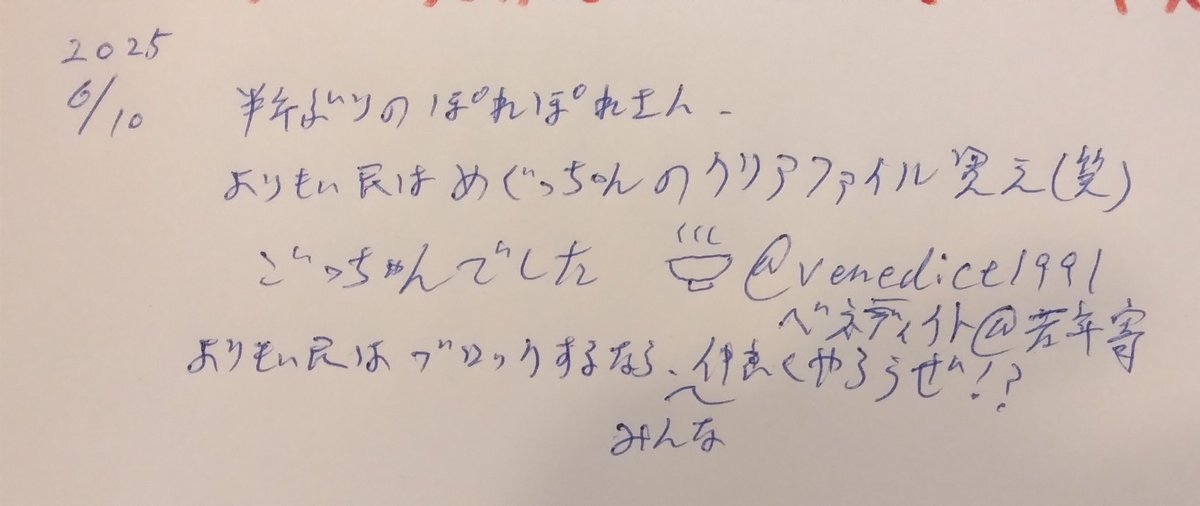 2025
6/10
半年ぶりのぽれぽれさん。
よりもい民はめぐっちゃんのクリアファイル買え(笑)
ごっちゃんでした @venedict1991
ベネディクト@若年寄
よりもい民はブロックするなら、仲良くやろうぜ!?
みんな